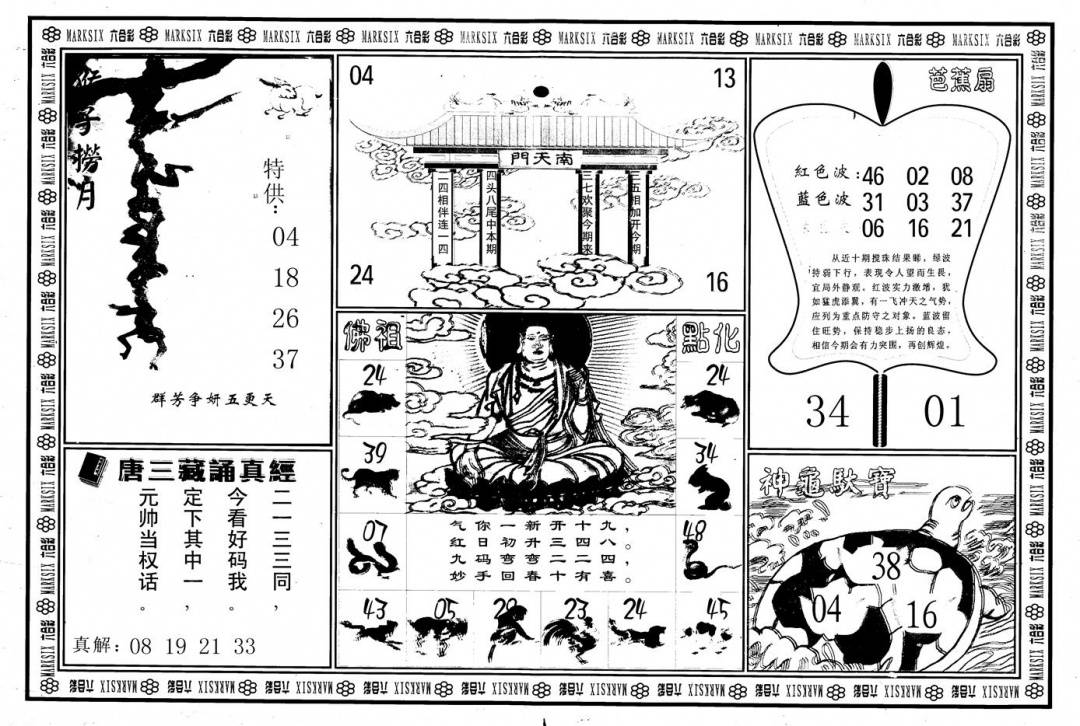 MARKSIX 六合彩 MARKSIX 六合彩 MARKSIX 六合彩 MARKSIX 六合彩 MARKSIX 六合彩 MARKSIX 六合彩 MARKSIX 六合彩 MARKSIX 六合彩 MARKSIX 六合彩 MARKSIX 六合彩
猴子撈月
特供：
04
18
26
37
群芳争妍五更天
04
13
南天門
二四相伴连一四
四头八尾中本期
三七欢聚今期来
三五相加开今期
24
16
芭蕉扇
紅色波：46 02 08
藍色波 31 03 37
06 16 21
从近十期搅珠结果睇，绿波
持弱下行，表现令人望而生畏，
宜局外静观。红波实力激增，犹
如猛虎添翼，有一飞冲天之气势，
应列为重点防守之对象。蓝波留
住旺势，保持稳步上扬的良态，
相信今期会有力突围，再创辉煌。
34
01
唐三藏誦真經
二一三三同，
今看好码我。
定下其中一，
元帅当权话。
真解：08 19 21 33
佛祖
點化
24
39
07
24
34
48
气你一新开十九，
红日初升三四八。
九码弯弯二二四，
妙手回春十有喜。
43
05
23
24
45
神龜馱寶
38
04
16
MARKSIX 六合彩 MARKSIX 六合彩 MARKSIX 六合彩 MARKSIX 六合彩 MARKSIX 六合彩 MARKSIX 六合彩 MARKSIX 六合彩 MARKSIX 六合彩 MARKSIX 六合彩 MARKSIX 六合彩